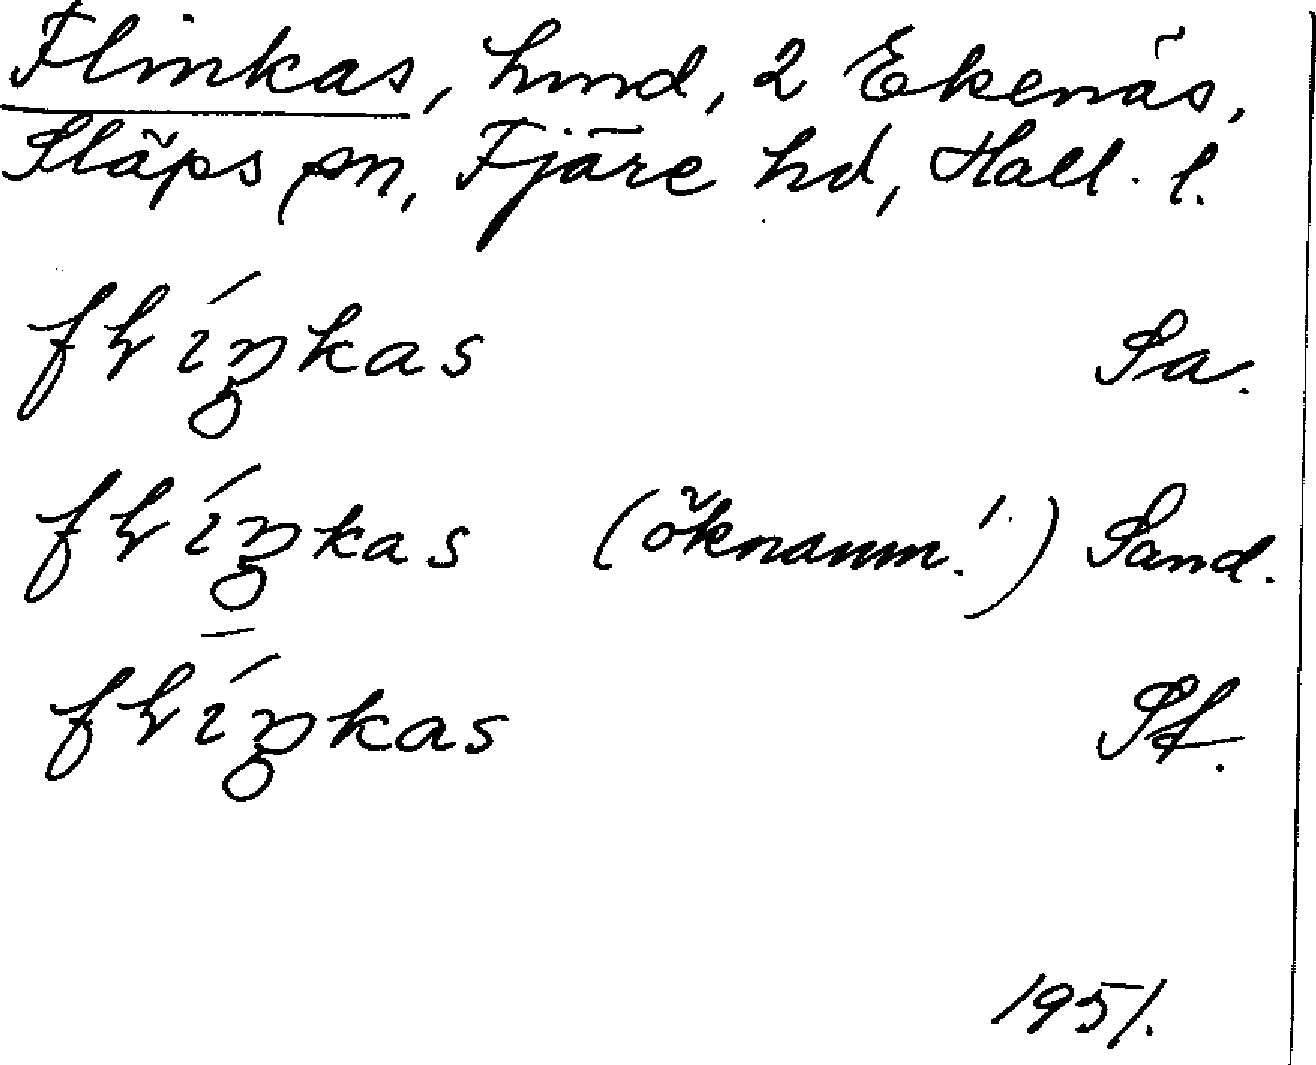 Flinkas, hmd, 2 Ekenäs,
Släps sn, Fjäre hd, Hall. l.
flíŋkas Sa.
flíŋkas (öknamn!) Sand.
flíŋkas Sf.
1951.